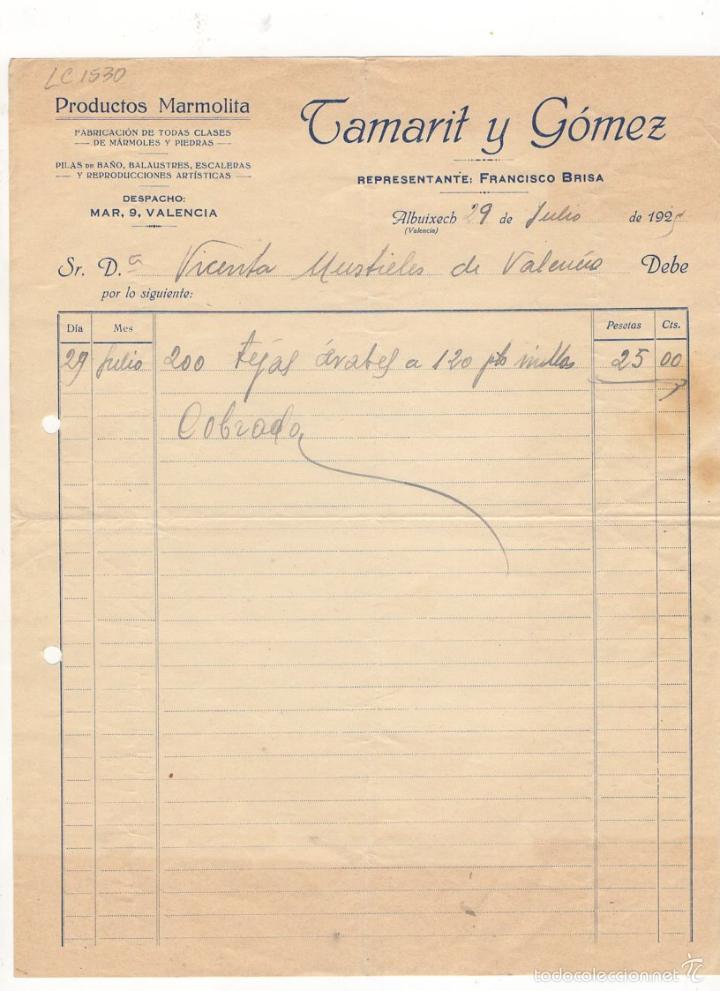 LC 1530
Productos Marmolita
FABRICACIÓN DE TODAS CLASES
DE MÁRMOLES Y PIEDRAS
PILAS DE BAÑO, BALAUSTRES, ESCALERAS
Y REPRODUCCIONES ARTÍSTICAS
DESPACHO:
MAR, 9, VALENCIA
Tamarit y Gómez
REPRESENTANTE: FRANCISCO BRISA
Albuixech 29 de Julio de 192
(Valencia)
Sr. D.ª Vicenta Mustieles de Valencia Debe
por lo siguiente:
Día Mes Pesetas Cts.
29 Julio 200 tejas árabes a 120 pts 25 00
Cobrado
todocoleccion.net